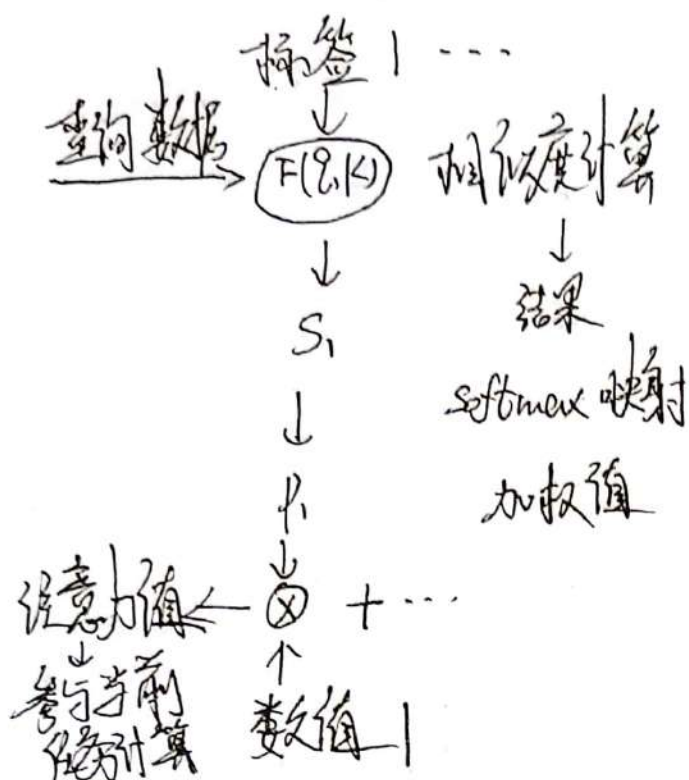 标签1 ····
查询数据
F(q,k) 相似度计算
S₁ 结果
softmax 映射
P₁ 加权值
注意力值 ⊗ + ···
参与当前
任务计算
数值1